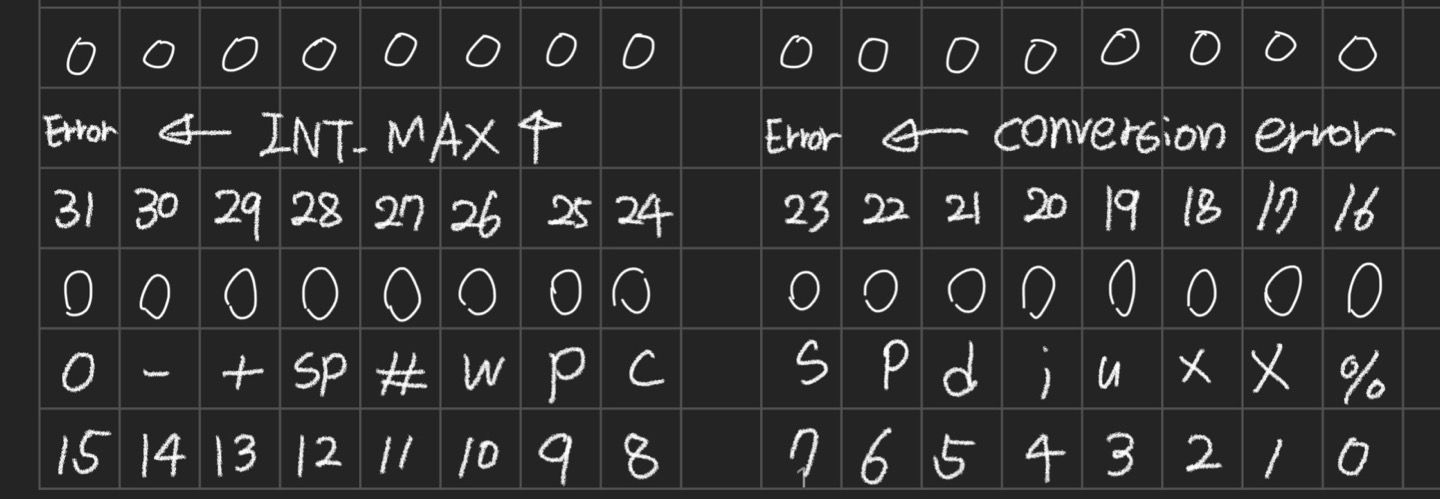 0 0 0 0 0 0 0 0 0 0 0 0 0 0 0 0
Error ← INT_MAX ↑ Error ← conversion error
31 30 29 28 27 26 25 24 23 22 21 20 19 18 17 16
0 0 0 0 0 0 0 0 0 0 0 0 0 0 0 0
0 - + SP # w P C S P d i u x X %
15 14 13 12 11 10 9 8 7 6 5 4 3 2 1 0